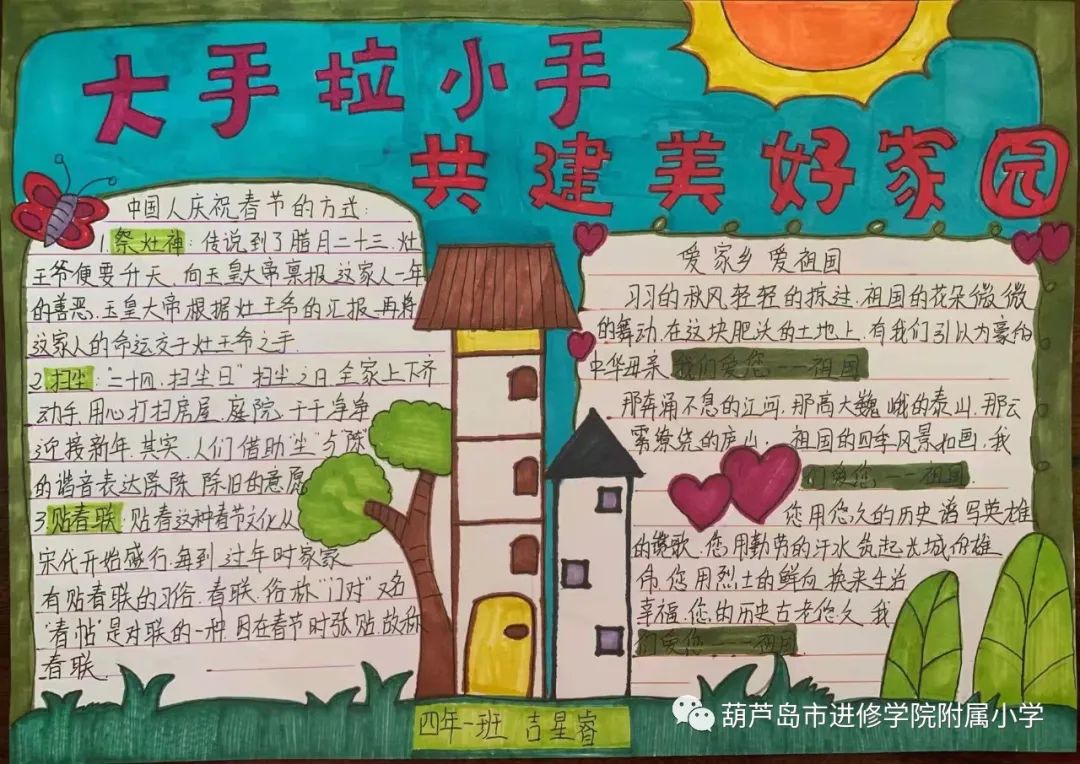 大手拉小手
共建美好家园
中国人庆祝春节的方式:
1.祭灶神:传说,到了腊月二十三,灶
王爷便要升天,向玉皇大帝禀报,这家人一年
的善恶,玉皇大帝根据灶王爷的汇报,再将
这家人的命运交于灶王爷之手.
2.扫尘:“二十四,扫尘日”扫尘之日,全家上下齐
动手,用心打扫房屋、庭院,干干净净
迎接新年.其实,人们借助“尘”与“陈”
的谐音表达除陈、除旧的意愿
3.贴春联:贴春这种春节文化从
宋代开始盛行,每到过年时家家
有贴春联的习俗.春联,俗称“门对”又名
“春帖”是对联的一种,因在春节时张贴,故称
春联.
爱家乡 爱祖国
习习的秋风轻轻的掠过,祖国的花朵微微
的舞动,在这块肥沃的土地上,有我们引以为豪的
中华母亲,我们爱您——祖国
那奔涌不息的江河,那高大巍峨的泰山,那云
雾缭绕的庐山,祖国的四季风景如画,我
们爱您——祖国.
您用悠久的历史谱写英雄
的赞歌,您用勤劳的汗水筑起长城的雄
伟,您用烈士的鲜血换来生活
幸福,您的历史古老悠久,我
们爱您——祖国
四年一班 吉星睿
葫芦岛市进修学院附属小学